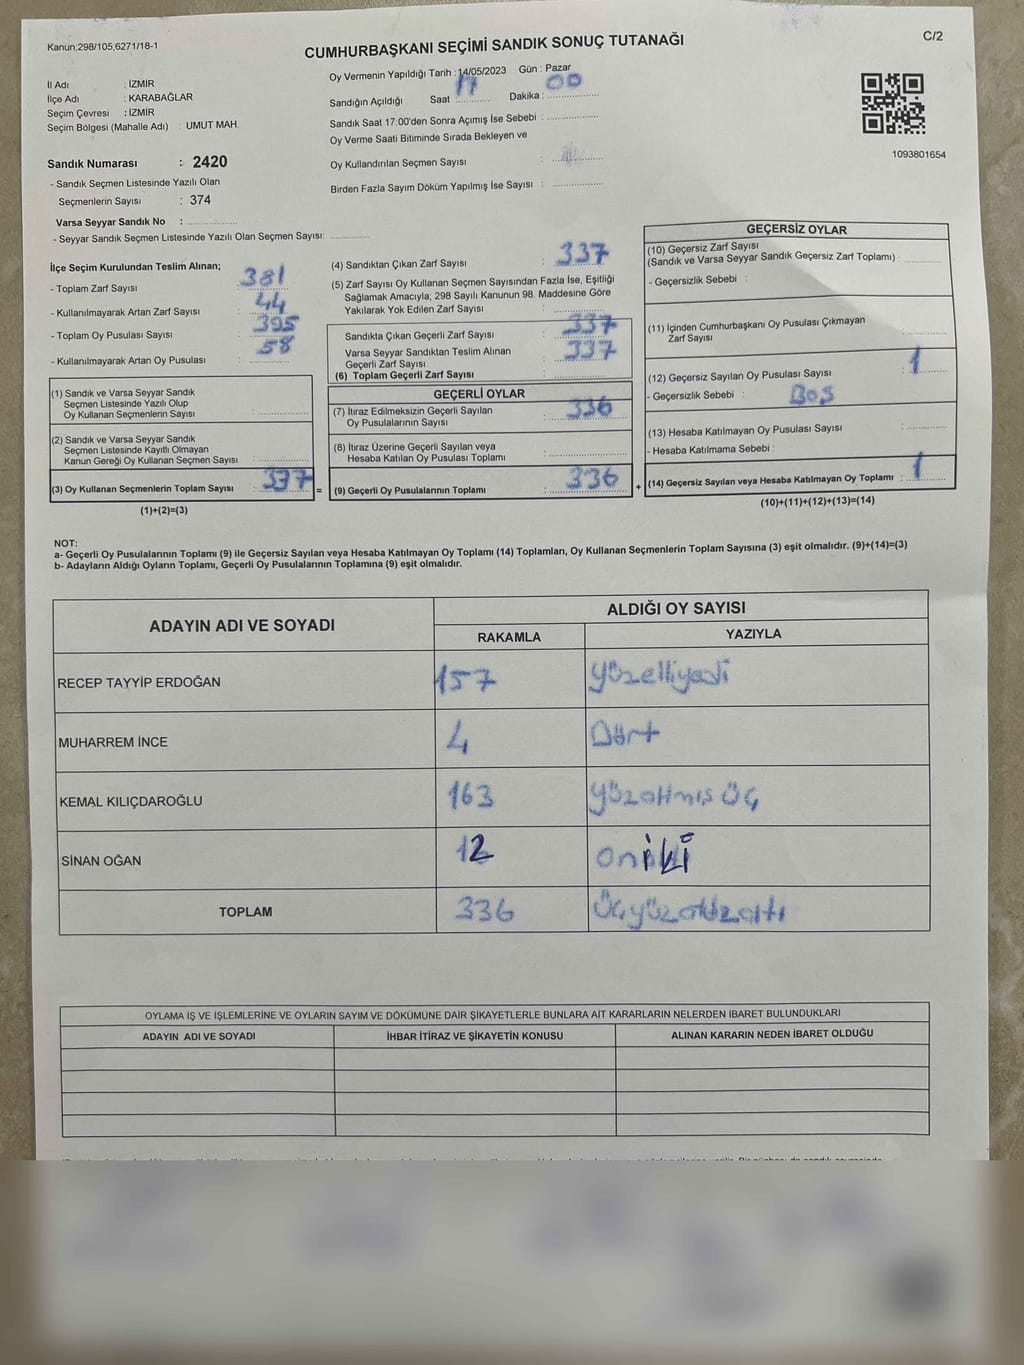 Kanun;298/105,6271/18-1
CUMHURBAŞKANI SEÇİMİ SANDIK SONUÇ TUTANAĞI
C/2
İl Adı : İZMİR
İlçe Adı : KARABAĞLAR
Seçim Çevresi : İZMİR
Seçim Bölgesi (Mahalle Adı) : UMUT MAH.
Sandık Numarası : 2420
- Sandık Seçmen Listesinde Yazılı Olan
Seçmenlerin Sayısı : 374
Varsa Seyyar Sandık No :
- Seyyar Sandık Seçmen Listesinde Yazılı Olan Seçmen Sayısı:
Oy Vermenin Yapıldığı Tarih :14/05/2023 Gün : Pazar
Sandığın Açıldığı Saat 17 Dakika : 00
Sandık Saat 17.00'den Sonra Açımış İse Sebebi :
Oy Verme Saati Bitiminde Sırada Bekleyen ve
Oy Kullandırılan Seçmen Sayısı :
Birden Fazla Sayım Döküm Yapılmış İse Sayısı :
1093801654
İlçe Seçim Kurulundan Teslim Alınan;
- Toplam Zarf Sayısı : 381
- Kullanılmayarak Artan Zarf Sayısı : 44
- Toplam Oy Pusulası Sayısı : 395
- Kullanılmayarak Artan Oy Pusulası : 58
(1) Sandık ve Varsa Seyyar Sandık
Seçmen Listesinde Yazılı Olup
Oy Kullanan Seçmenlerin Sayısı :
(2) Sandık ve Varsa Seyyar Sandık
Seçmen Listesinde Kayıtlı Olmayan
Kanun Gereği Oy Kullanan Seçmen Sayısı :
(3) Oy Kullanan Seçmenlerin Toplam Sayısı : 337 =
(1)+(2)=(3)
(4) Sandıktan Çıkan Zarf Sayısı : 337
(5) Zarf Sayısı Oy Kullanan Seçmen Sayısından Fazla İse, Eşitliği
Sağlamak Amacıyla; 298 Sayılı Kanunun 98. Maddesine Göre
Yakılarak Yok Edilen Zarf Sayısı :
Sandıkta Çıkan Geçerli Zarf Sayısı : 337
Varsa Seyyar Sandıktan Teslim Alınan
Geçerli Zarf Sayısı : 337
(6) Toplam Geçerli Zarf Sayısı :
GEÇERLİ OYLAR
(7) İtiraz Edilmeksizin Geçerli Sayılan
Oy Pusulalarının Sayısı : 336
(8) İtiraz Üzerine Geçerli Sayılan veya
Hesaba Katılan Oy Pusulası Toplamı :
(9) Geçerli Oy Pusulalarının Toplamı : 336 +
GEÇERSİZ OYLAR
(10) Geçersiz Zarf Sayısı
(Sandık ve Varsa Seyyar Sandık Geçersiz Zarf Toplamı) :
- Geçersizlik Sebebi :
(11) İçinden Cumhurbaşkanı Oy Pusulası Çıkmayan
Zarf Sayısı :
(12) Geçersiz Sayılan Oy Pusulası Sayısı : 1
- Geçersizlik Sebebi : Boş
(13) Hesaba Katılmayan Oy Pusulası Sayısı :
- Hesaba Katılmama Sebebi :
(14) Geçersiz Sayılan veya Hesaba Katılmayan Oy Toplamı : 1
(10)+(11)+(12)+(13)=(14)
NOT:
a- Geçerli Oy Pusulalarının Toplamı (9) ile Geçersiz Sayılan veya Hesaba Katılmayan Oy Toplamı (14) Toplamları, Oy Kullanan Seçmenlerin Toplam Sayısına (3) eşit olmalıdır. (9)+(14)=(3)
b- Adayların Aldığı Oyların Toplamı, Geçerli Oy Pusulalarının Toplamına (9) eşit olmalıdır.
ADAYIN ADI VE SOYADI
ALDIĞI OY SAYISI
RAKAMLA YAZIYLA
RECEP TAYYİP ERDOĞAN 157 yüzelliyedi
MUHARREM İNCE 4 Dört
KEMAL KILIÇDAROĞLU 163 yüzatmış üç
SİNAN OĞAN 12 oniki
TOPLAM 336 Üçyüzotuzaltı
OYLAMA İŞ VE İŞLEMLERİNE VE OYLARIN SAYIM VE DÖKÜMÜNE DAİR ŞİKAYETLERLE BUNLARA AİT KARARLARIN NELERDEN İBARET BULUNDUKLARI
ADAYIN ADI VE SOYADI İHBAR İTİRAZ VE ŞİKAYETİN KONUSU ALINAN KARARIN NEDEN İBARET OLDUĞU